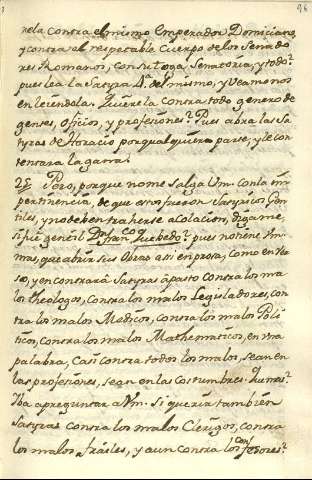 96
rela contra el mismo Emperador Domiciano,
y contra el respetable Cuerpo de los Senado
res Romanos, con su toga, Senatoria, y todo?
pues lea la Satyra 4.ª del mismo, y veamonos
en leiendola. Quierela contra todo genero de
gentes, oficios, y profesiones? Pues abra las Sa
tyras de Horacio por qualquiera parte, y le con
tentara la gana.
25 Pero, porque no me salga Vm. con la im
pertinencia, de que estos fueron Satyricos Gen
tiles, y no deben traherse a colacion, digame,
si fue gentil Dn. Franco. Quebedo? pues no tiene Vm.
mas, que abrir sus Obras assi en prosa, como en Ver
so, y encontrará Satyras á pasto contra los ma
los theologos, contra los malos Legisladores, con
tra los malos Medicos, contra los malos Poli
ticos, contra los malos Mathematicos, en una
palabra, casi contra todos los malos, sean en
las profesiones, sean en las costumbres.
Iba a preguntar a Vm. si queria tambien
Satyras contra los malos Clerigos, contra
los malos frailes, y aun contra los confesores?